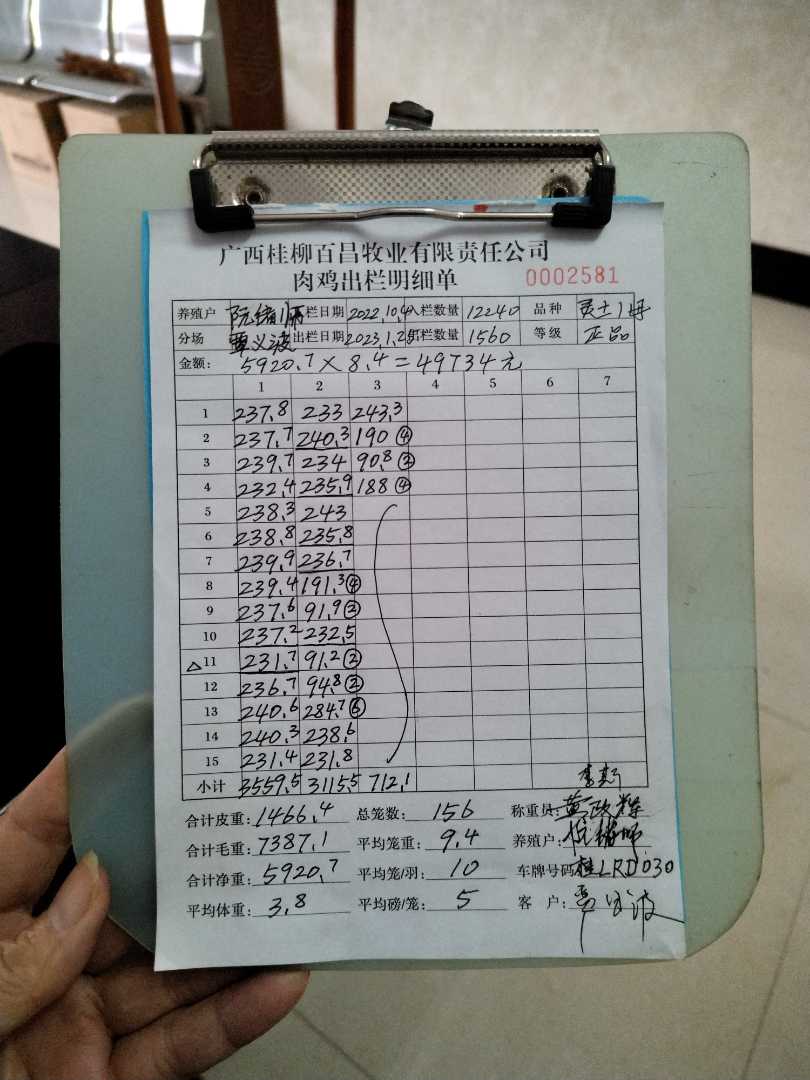 广西桂柳百昌牧业有限责任公司
肉鸡出栏明细单 0002581
养殖户 阮绪 栏日期 2022.10.4 入栏数量 12240 品种
分场 覃义波 出栏日期 2023.1.2 栏数量 1560 等级 正品
金额: 5920.7×8.4=49734元
1 2 3 4 5 6 7
1 237.8 233 243.3
2 237.7 240.3 190 ④
3 239.7 234 90.8 ②
4 232.4 235.9 188 ④
5 238.3 243
6 238.8 235.8
7 239.9 236.7
8 239.4 191.3 ④
9 237.6 91.9 ②
10 237.2 232.5
△11 231.7 91.2 ②
12 236.7 94.8 ②
13 240.6 284.7 ⑥
14 240.3 238.6
15 231.4 231.8
小计 3559.5 3115.5 712.1
合计皮重: 1466.4 总笼数: 156 称重员: 黄政辉
合计毛重: 7387.1 平均笼重: 9.4 养殖户:
合计净重: 5920.7 平均笼/羽: 10 车牌号码 桂LRD030
平均体重: 3.8 平均磅/笼: 5 客 户: